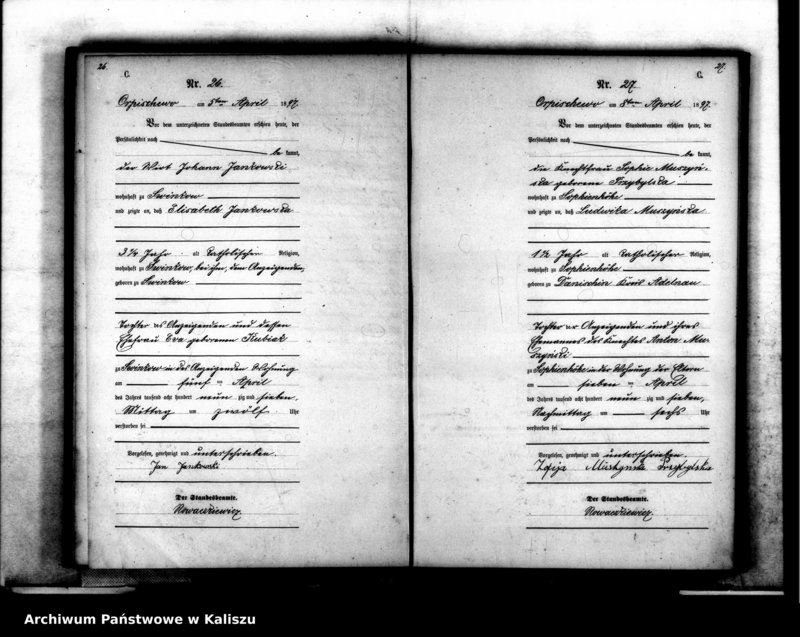 26.
C.
Nr. 26.
Orpischewo am 5ten April 1897.
Vor dem unterzeichneten Standesbeamten erschien heute, der
Persönlichkeit nach
be kannt,
der Wirt Johann Jankowski
wohnhaft zu Swinkow
und zeigte an, daß Elisabeth Jankowska
3¼ Jahr alt katholischer Religion,
wohnhaft zu Swinkow, bei ihm, dem Anzeigenden,
geboren zu Swinkow
Tochter des Anzeigenden und dessen
Ehefrau Eva geborenen Kubiak
zu Swinkow in des Anzeigenden Wohnung
am fünf ten April
des Jahres tausend acht hundert neun zig und sieben,
Mittag um zwölf Uhr
verstorben sei
Vorgelesen, genehmigt und unterschrieben.
Jan Jankowski
Der Standesbeamte.
Nowackiewicz
27.
C.
Nr. 27
Orpischewo am 8ten April 1897.
Vor dem unterzeichneten Standesbeamten erschien heute, der
Persönlichkeit nach
be kannt,
die Knechtfrau Sophie Muszyń-
ska geborene Przybylska
wohnhaft zu Sophienhöhe
und zeigte an, daß Ludwika Muszyńska
Jahr alt katholischer Religion,
wohnhaft zu Sophienhöhe
geboren zu Danischin Kreis Adelnau
Tochter der Anzeigenden und ihres
Ehemannes des Knechtes Anton Mu-
szyński
zu Sophienhöhe in der Wohnung der Eltern
am sieben ten April
des Jahres tausend acht hundert neun zig und sieben,
Nachmittag um sechs Uhr
verstorben sei
Vorgelesen, genehmigt und unterschrieben.
Zofija Przybylska
Der Standesbeamte.
Nowackiewicz
Archiwum Państwowe w Kaliszu